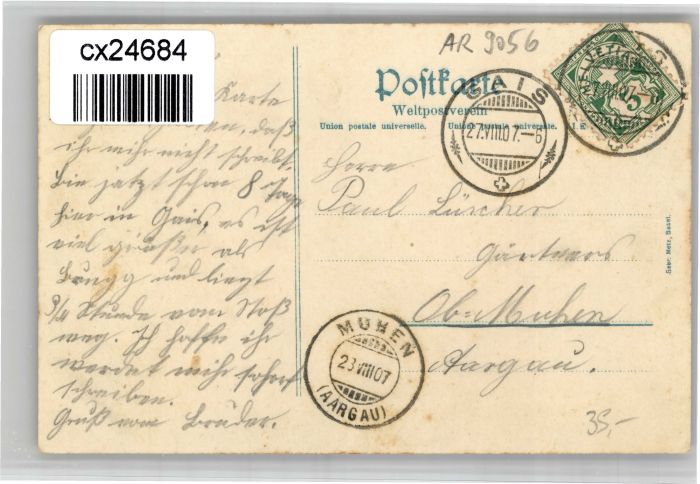 cx24684
AR 9056
Postkarte
Weltpostverein
Union postale universelle. Union postale universelle.
GAIS
27.VIII.07.-6
HELVETIA
5
Karte
daß
ihr mir nicht schreibt.
Bin jetzt schon 8 Tage
hier in Gais, es ist
viel größer als
Brugg und liegt
3/4 Stunde vom Stoß
weg. Ich hoffe ihr
werdet mir sofort
schreiben.
Gruß vom Bruder.
Herrn
Paul Lüscher
Gärtners
Ob=Muhen
Aargau.
Gebr. Metz, Basel.
MUHEN
28.VIII.07
(AARGAU)
35,-